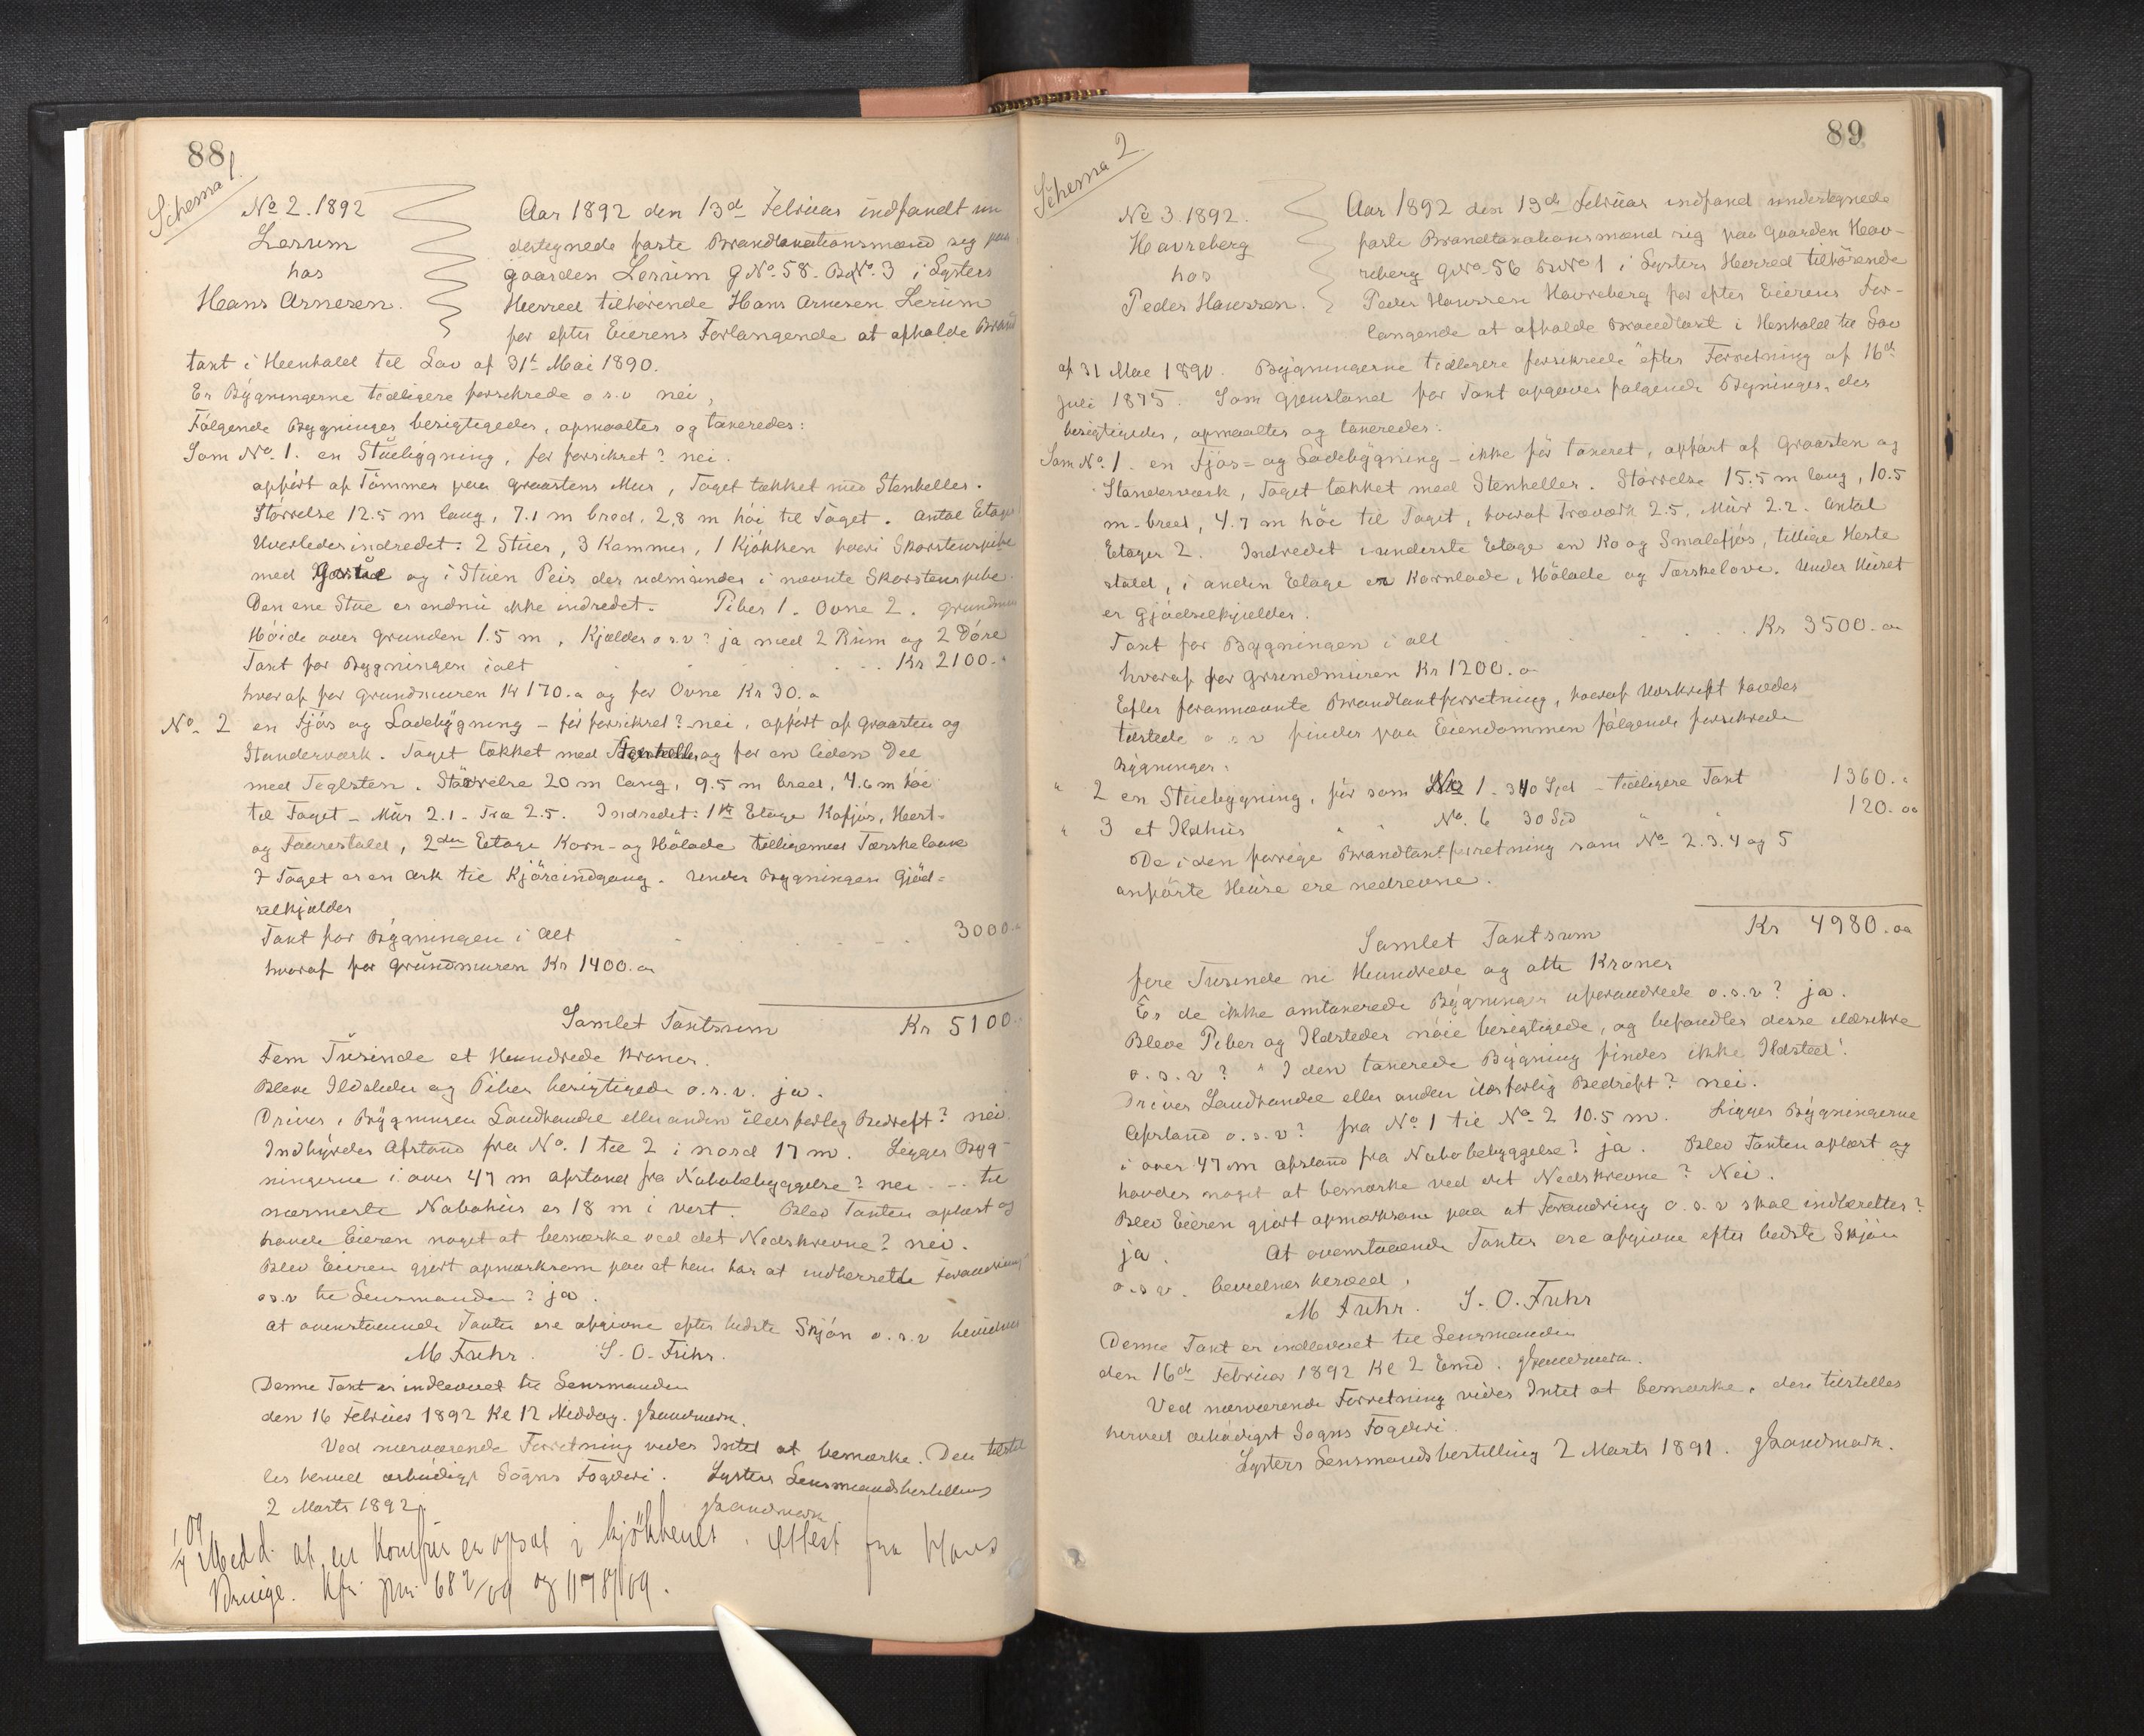 88
Schema 1.
No 2. 1892
Lerum
hos
Hans Arnesen.
Aar 1892 den 13de Februar indfandt un
dertegnede faste Brandtaxationsmænd sig paa
gaarden Lerum GNo. 58. BNo. 3 i Lysters
Herred tilhørende Hans Arnesen Lerum
for efter Eierens Forlangende at afholde Brand
taxt i Henhold til Lov af 31te Mai 1890.
Er Bygningerne tidligere forsikrede o.s.v nei,
Følgende Bygninger besigtigedes, opmaaltes og taxeredes:
Som No. 1. en Stuebygning, før forsikret? nei.
opført af Tømmer paa Graastens Mur, Taget tækket med Stenheller.
Størrelse 12.5 m lang, 7.1 m bred, 2,8 m høi til Taget. Antal Etager
Uverledes indredet: 2 Stuer, 3 Kammer, 1 Kjøkken hvori Skorstenspibe
med og i Stuen Peis der udmunder i nævnte Skorstenspibe.
Den ene Stue er endnu ikke indredet. Piber 1. Ovne 2. Grundmur
Høide over Grunden 1.5 m, Kjælder o.s.v? ja med 2 Rum og 2 Døre
Taxt for Bygningen ialt . . . . . Kr 2100.
hvoraf for Grundmuren Kr 170.- og for Ovne Kr 30.-
No. 2 en Fjøs og Ladebygning - før forsikret? - nei, opført af Graasten og
Standerværk. Taget tækket med Stenheller og for en liden Del
med Teglsten. Størrelse 20 m lang, 9.5 m bred, 4.6 m høi
til Taget - Mur 2.1 - Træ 2.5. Indredet: 1ste Etage Kofjøs, Hest-
og Faarestald, 2den Etage Korn- og Hølade tilligemed Tærskelaave
I Taget er en Ark til Kjøreindgang. Under Bygningen Gjød-
selkjælder
Taxt for Bygningen i Alt . . . . 3000.-
hvoraf for Grundmuren Kr 1400.oo
Samlet Taxtsum Kr 5100.-
Fem Tusinde et Hundrede Kroner.
Bleve Ildsteder og Piber besigtigede o.s.v. ja.
Drives i Bygningen Landhandel eller anden ildsfarlig Bedrift? nei.
Indbyrdes Afstand fra No. 1 til 2 i nord 17 m. Ligger Byg-
ningerne i over 47 m afstand fra Nabobebyggelse? nei - - til
nærmeste Nabohus er 18 m i vest. Blev Taxten oplæst og
havde Eieren noget at bemærke ved det Nedskrevne? nei.
Blev Eieren gjort opmærksom paa at han har at indberette Forandring
o.s.v til Lensmanden? ja.
At ovenstaaende Taxter ere afgivne efter bedste Skjøn o.s.v bevidnes
M Fuhr. S. O. Fuhr.
Denne Taxt er indleveret til Lensmanden
den 16 Februar 1892 Kl 12 Middag. JSandmark.
Ved nærværende Forretning vides Intet at bemærke. Den tilstil
les herved ærbødigst Sogns Fogderi. Lysters Lensmandsbestilling
2 Marts 1892. JSandmark
Medd. at en Komfur er opsat i kjøkkenet. Attest fra Hans
Bruige. Kfr. jnr 682/09 og 1178/09.
89
Schema 2.
No 3. 1892.
Havreberg
hos
Peder Hanssen.
Aar 1892 den 13de Februar indfand undertegnede
faste Brandtaxationsmænd sig paa Gaarden Hav-
reberg GNo 56 BNo 1 i Lysters Herred tilhørende
Peder Hanssen Havreberg for efter Eierens For-
langende at afholde Brandtaxt i Henhold til Lov
af 31 Mai 1890. Bygningerne tidligere forsikrede efter Forretning af 16de
Juli 1875. Som Gjenstand for Taxt opgaves følgende Bygninger, der
besigtigedes, opmaaltes og taxeredes:
Som No. 1. en Fjøs- og Ladebygning - ikke før taxeret, opført af Graasten og
Standerværk, Taget tækket med Stenheller. Størrelse 15.5 m lang, 10.5
m bred, 4.7 m høi til Taget, hvoraf Træværk 2.5, Mur 2.2. Antal
Etager 2. Indredet i underste Etage en Ko og Smalefjøs, tillige Heste
stald, i anden Etage er Kornlade, Hølade og Tærskelove. Under Huset
er Gjødselkjælder.
Taxt for Bygningen i alt . . . . Kr 3500.oo
hvoraf for Grundmuren Kr 1200.o
Efter forannævnte Brandtaxtforretning, hvoraf Udskrift havdes
tilstede o s v findes paa Eiendommen følgende forsikrede
Bygninger:
" 2 en Stuebygning, før som No 1. 340 Spd - tidligere Taxt 1360.-
" 3 et Ildhus " " No. 6 30 Spd " " 120.oo
De i den forrige Brandtaxtforretning som No 2.3.4 og 5
anførte Huse ere nedrevne.
Samlet Taxtsum Kr 4980.oo
fire Tusinde ni Hundrede og otte Kroner
Er de ikke omtaxerede Bygninger uforandrede o.s.v? ja.
Bleve Piber og Ildsteder nøie besigtigede, og befandtes disse ildsikre
o.s.v? " I den taxerede Bygning findes ikke Ildsted.
Drives Landhandel eller anden ildsfarlig Bedrift? nei.
Afstand o.s.v? fra No 1 til No 2 10.5 m. Ligger Bygningerne
i over 47 m afstand fra Nabobebyggelse? ja. Blev Taxten oplæst og
havdes noget at bemærke ved det Nedskrevne? Nei.
Blev Eieren gjort opmærksom paa at Forandring o.s.v skal indberettes?
ja. At ovenstaaende Taxter ere afgivne efter bedste Skjøn
o.s.v. bevidnes herved.
M Fuhr. S. O. Fuhr
Denne Taxt er indleveret til Lensmanden
den 16de Februar 1892 Kl 2 Emd. JSandmark.
Ved nærværende Forretning vides Intet at bemærke, den tilstilles
herved ærbødigst Sogns Fogderi.
Lysters Lensmandsbestilling 2 Marts 1891. JSandmark.